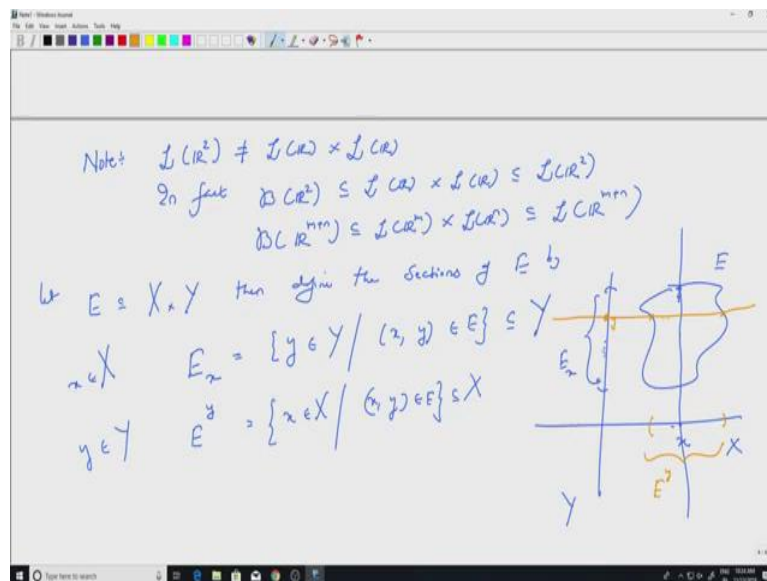 Note1 - Windows Journal
File Edit View Insert Actions Tools Help
Note: L(ℝ²) ≠ L(ℝ) × L(ℝ)
In fact B(ℝ²) ⊆ L(ℝ) × L(ℝ) ⊆ L(ℝ²)
B(ℝᵐ⁺ⁿ) ⊆ L(ℝᵐ) × L(ℝⁿ) ⊆ L(ℝᵐ⁺ⁿ)
Let E ⊆ X × Y then define the Sections of E by
x ∈ X E_x = {y ∈ Y / (x, y) ∈ E} ⊆ Y
y ∈ Y E^y = {x ∈ X / (x, y) ∈ E} ⊆ X
E
y
E_x
x
X
E^y
Y
Type here to search